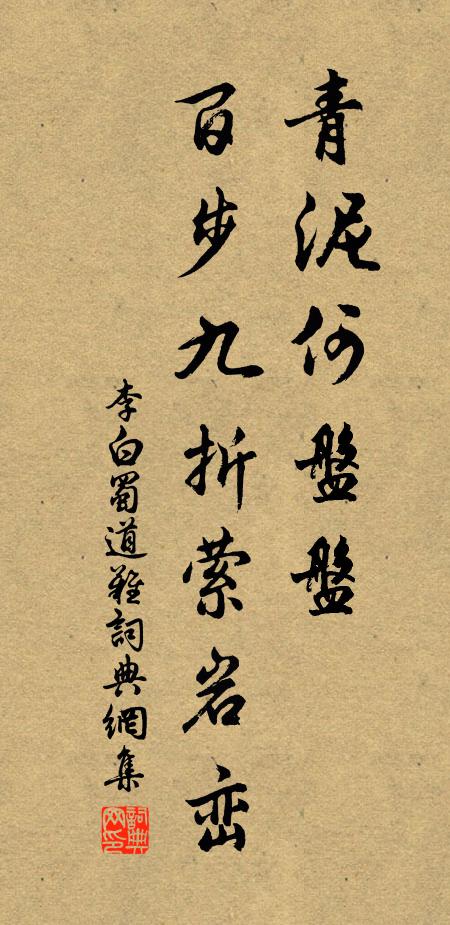 青泥何盤盤
百步九折萦岩峦
李白蜀道難詞典網集
詞典网印